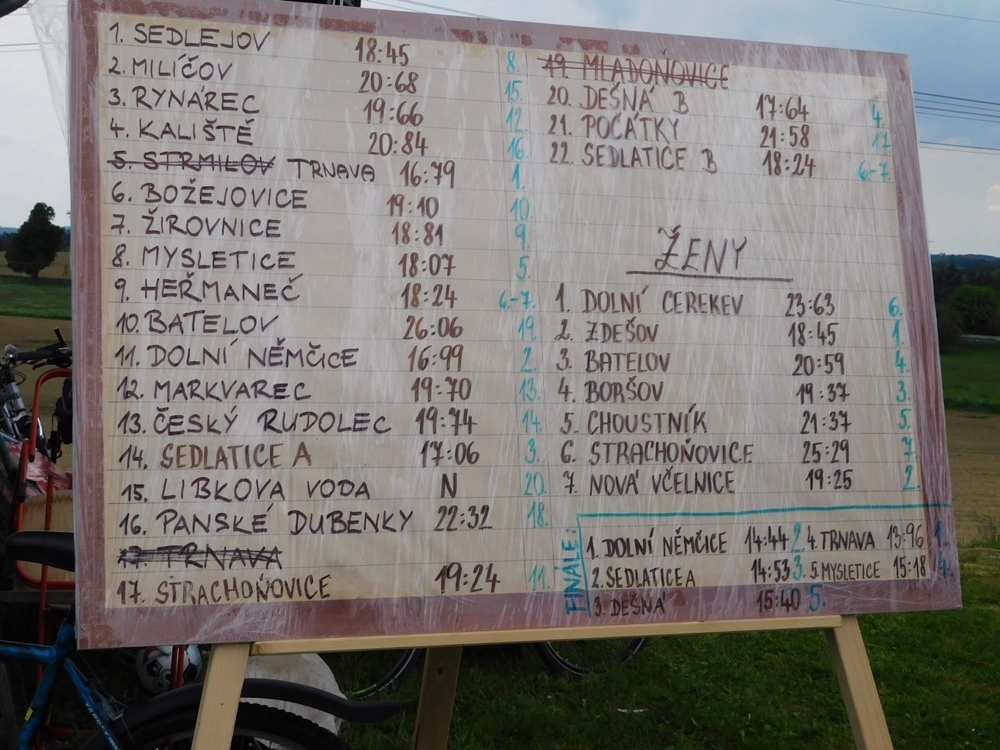 1. SEDLEJOV 18:45 8.
2. MILÍČOV 20:68 15.
3. RYNÁREC 19:66 12.
4. KALIŠTĚ 20:84 16.
5. STRMILOV TRNAVA 16:79 1.
6. BOŽEJOVICE 19:10 10.
7. ŽIROVNICE 18:81 9.
8. MYSLETICE 18:07 5.
9. HEŘMANEČ 18:24 6.-7.
10. BATELOV 26:06 19.
11. DOLNÍ NĚMČICE 16:99 2.
12. MARKVAREC 19:70 13.
13. ČESKÝ RUDOLEC 19:74 14.
14. SEDLATICE A 17:06 3.
15. LIBKOVA VODA N 20.
16. PANSKÉ DUBENKY 22:32 18.
17. TRNAVA
17. STRACHOŇOVICE 19:24 11.
19. MLADOŇOVICE
20. DEŠNÁ B 17:64 4.
21. POČÁTKY 21:58 17
22. SEDLATICE B 18:24 6-7.
ŽENY
1. DOLNÍ CEREKEV 23:63 6.
2. ZDEŠOV 18:45 1.
3. BATELOV 20:59 4.
4. BORŠOV 19:37 3.
5. CHOUSTNÍK 21:37 5.
6. STRACHOŇOVICE 25:29 7.
7. NOVÁ VČELNICE 19:25 2.
FINÁLE:
1. DOLNÍ NĚMČICE 14:44 2. 4. TRNAVA 13:96 1.
2. SEDLATICE A 14:53 3. 5. MYSLETICE 15:18 4.
3. DEŠNÁ 15:40 5.